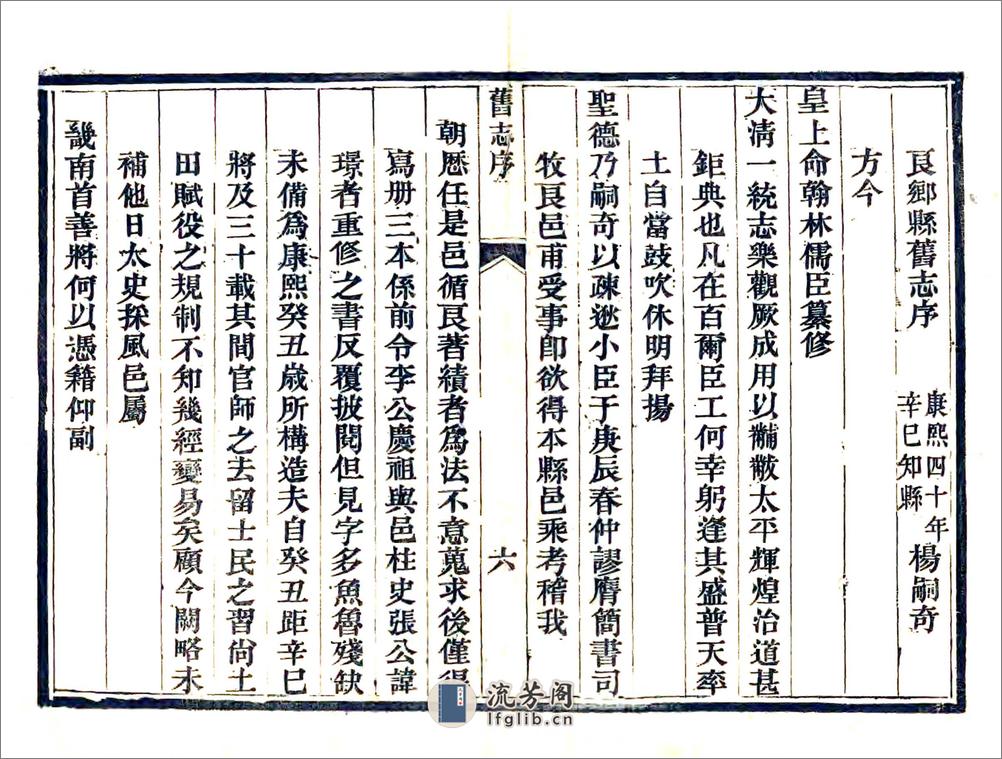 良鄉縣舊志序 康熙四十年辛巳知縣 楊嗣奇
方今
皇上命翰林儒臣纂修
大清一統志樂觀厥成用以黼黻太平輝煌治道甚
鉅典也凡在百爾臣工何幸躬逢其盛普天率
土自當鼓吹休明拜揚
聖德乃嗣奇以疎逖小臣于庚辰春仲謬膺簡書司
牧良邑甫受事卽欲得本縣邑乘考稽我
舊志序 六
朝歷任是邑循良著績者爲法不意蒐求後僅得
寫册三本係前令李公慶祖與邑柱史張公諱
璟者重修之書反覆披閱但見字多魚魯殘缺
未備爲康熙癸丑歲所構造夫自癸丑距辛巳
將及三十載其間官師之去留士民之習尙土
田賦役之規制不知幾經變易矣顧今闕略未
補他日太史採風邑屬
畿南首善將何以憑籍仰副
流芳阁
lfglib.cn